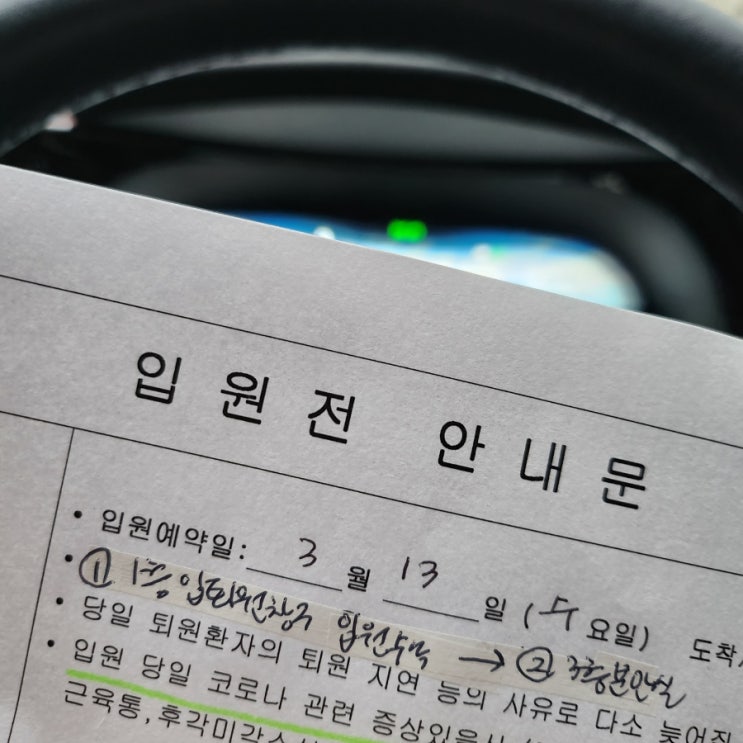 입원전 안내문
• 입원예약일: 3 월 13 일 (수 요일) 도착
• ① 1층 입퇴원창구 입원수속 → ② 3층 분만실
• 당일 퇴원환자의 퇴원 지연 등의 사유로 다소 늦어질
• 입원 당일 코로나 관련 증상있을시
근육통, 후각미각소